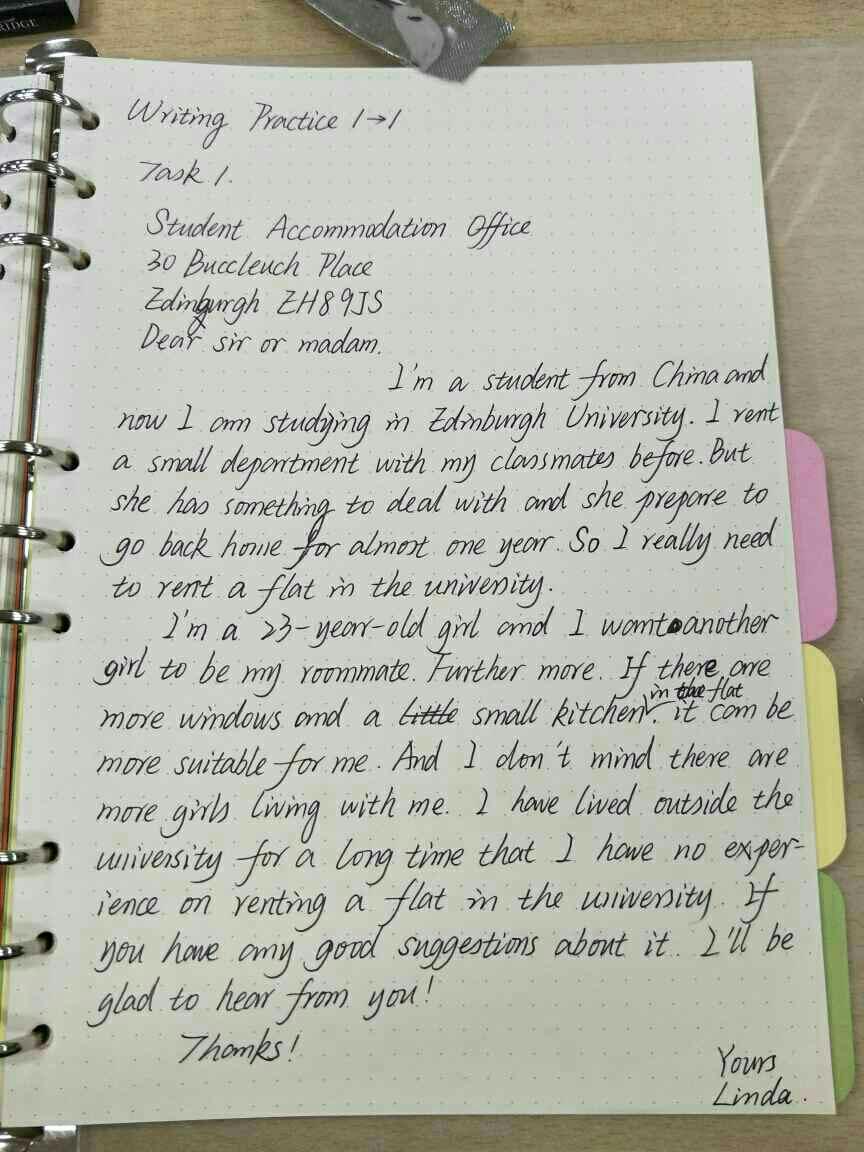 RIDGE
Writing Practice 1→1
Task 1.
Student Accommodation Office
30 Buccleuch Place
Edinburgh EH8 9JS
Dear sir or madam.
I'm a student from China and
now I am studying in Edinburgh University. I rent
a small department with my classmates before. But
she has something to deal with and she prepare to
go back home for almost one year. So I really need
to rent a flat in the university.
I'm a 23-year-old girl and I want another
girl to be my roommate. Further more. If there are
in the flat
more windows and a little small kitchen. it can be
more suitable for me. And I don't mind there are
more girls living with me. I have lived outside the
university for a long time that I have no exper-
ience on renting a flat in the university. If
you have any good suggestions about it. I'll be
glad to hear from you!
Thanks!
Yours
Linda.